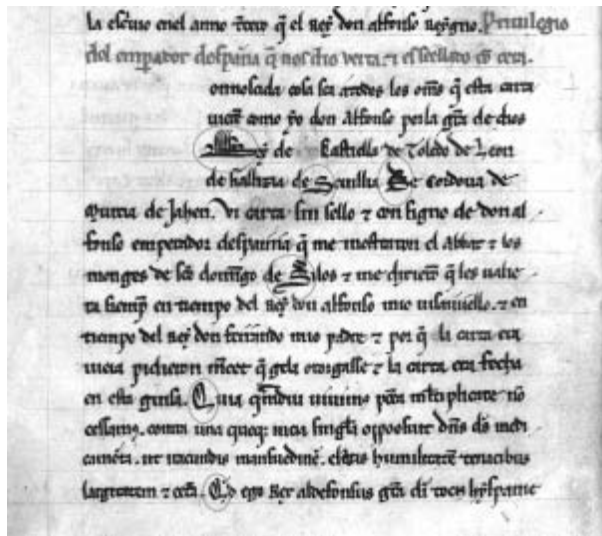 la escriuio enel anno tercero q̃ el Rey don alfonso regno. Priuilegio
del emperador despanna q̃ nos dio uerta. τ es seellado cõ cera.
onnosçuda cosa sea a todos los oms̃ q̃ esta carta
uierẽ como yo don Alfonso por la grã de dios
Rey de Castiella de Toledo de Leon
de Gallizia de Seuillia De Cordoua de
Murcia de Jahen. Vi carta sin sello τ con signo de don al
fonso emperador despanna q̃ me mostraron el Abbat τ los
monges de sc̃o domĩgo de Silos τ me dixierõ q̃ les ualie
ra siemp̃ en tiempo del Rey don alfonso mio uisauuello. τ en
tiempo del Rey don ferrãndo mio padre τ por q̃ la carta era
uieia pidieron mercet q̃ gela otorgasse τ la carta era fecha
en esta guisa. Quia quãdiu uiuimus peccata multiplicare nõ
cessamus. contra una queq; mala singula opposuit dñs ds̃ medi
camẽta. ut iracundis mansuetudinẽ. elatis humilitatẽ tenacibus
largitatem τ cetã. Q̃d ego Rex aldefonsus grã di tocius hyspanie